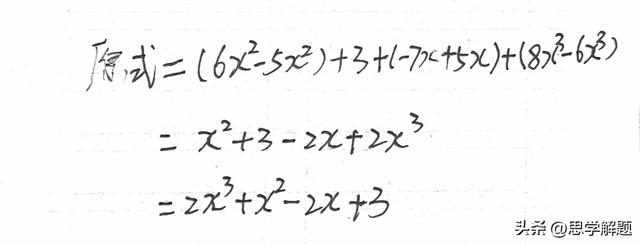 原式=(6x²-5x²)+3+(-7x+5x)+(8x³-6x³)
= x²+3-2x+2x³
=2x³+x²-2x+3
头条 @思学解题